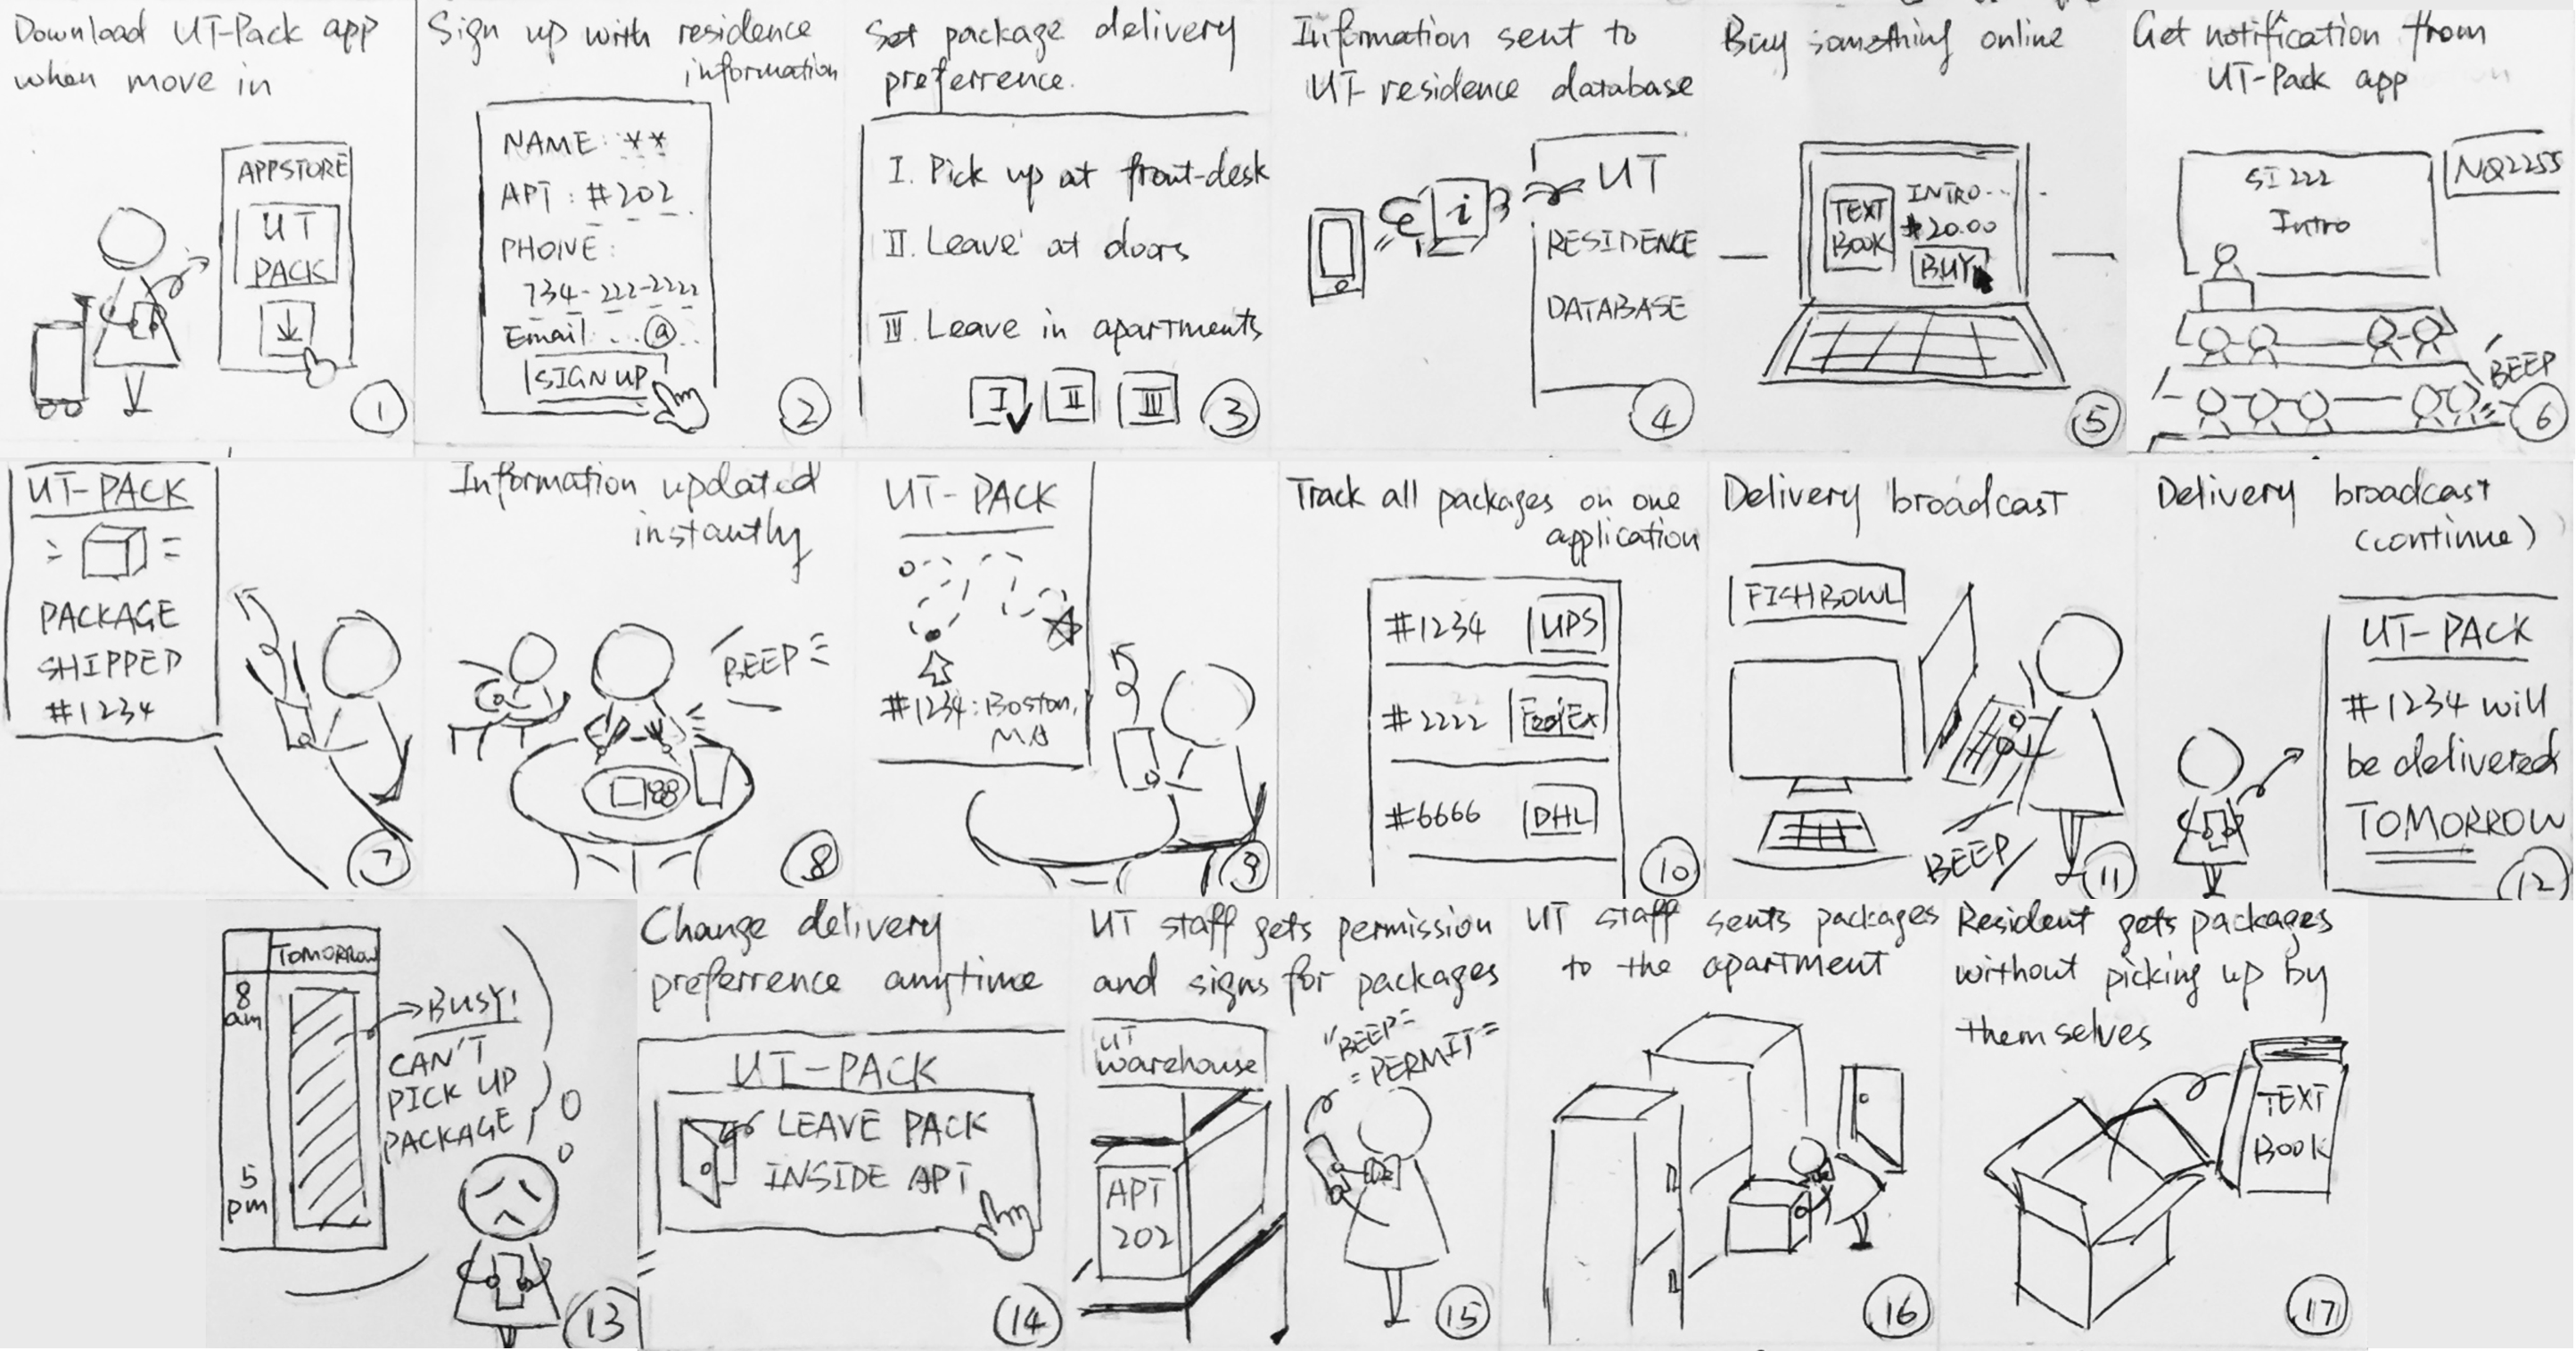 Download UT-Pack app
when move in
APPSTORE
UT
PACK
1
Sign up with residence
information
NAME: **
APT: #202
PHONE:
734-222-2222
Email...@..
SIGN UP
2
Set package delivery
preferrence.
I. Pick up at front-desk
II. Leave at doors
III. Leave in apartments
I II III
3
Information sent to
UT residence database
i
UT
RESIDENCE
DATABASE
4
Buy something online
TEXT
BOOK
INTRO...
$20.00
BUY
5
Get notification from
UT-Pack app
SI222
Intro
NQ2255
BEEP
6
UT-PACK
PACKAGE
SHIPPED
#1234
7
Information updated
instantly
BEEP
8
UT-PACK
#1234: Boston,
MA
9
Track all packages on one
application
#1234 UPS
#2222 FedEx
#6666 DHL
10
Delivery broadcast
FISHBOWL
BEEP
11
Delivery broadcast
(continue)
UT-PACK
#1234 will
be delivered
TOMORROW
12
TOMORROW
8
am
5
pm
BUSY!
CAN'T
PICK UP
PACKAGE
13
Change delivery
preferrence anytime
UT-PACK
LEAVE PACK
INSIDE APT
14
UT staff gets permission
and signs for packages
UT
warehouse
APT
202
BEEP
PERMIT
15
UT staff sents packages
to the apartment
16
Resident gets packages
without picking up by
themselves
TEXT
BOOK
17